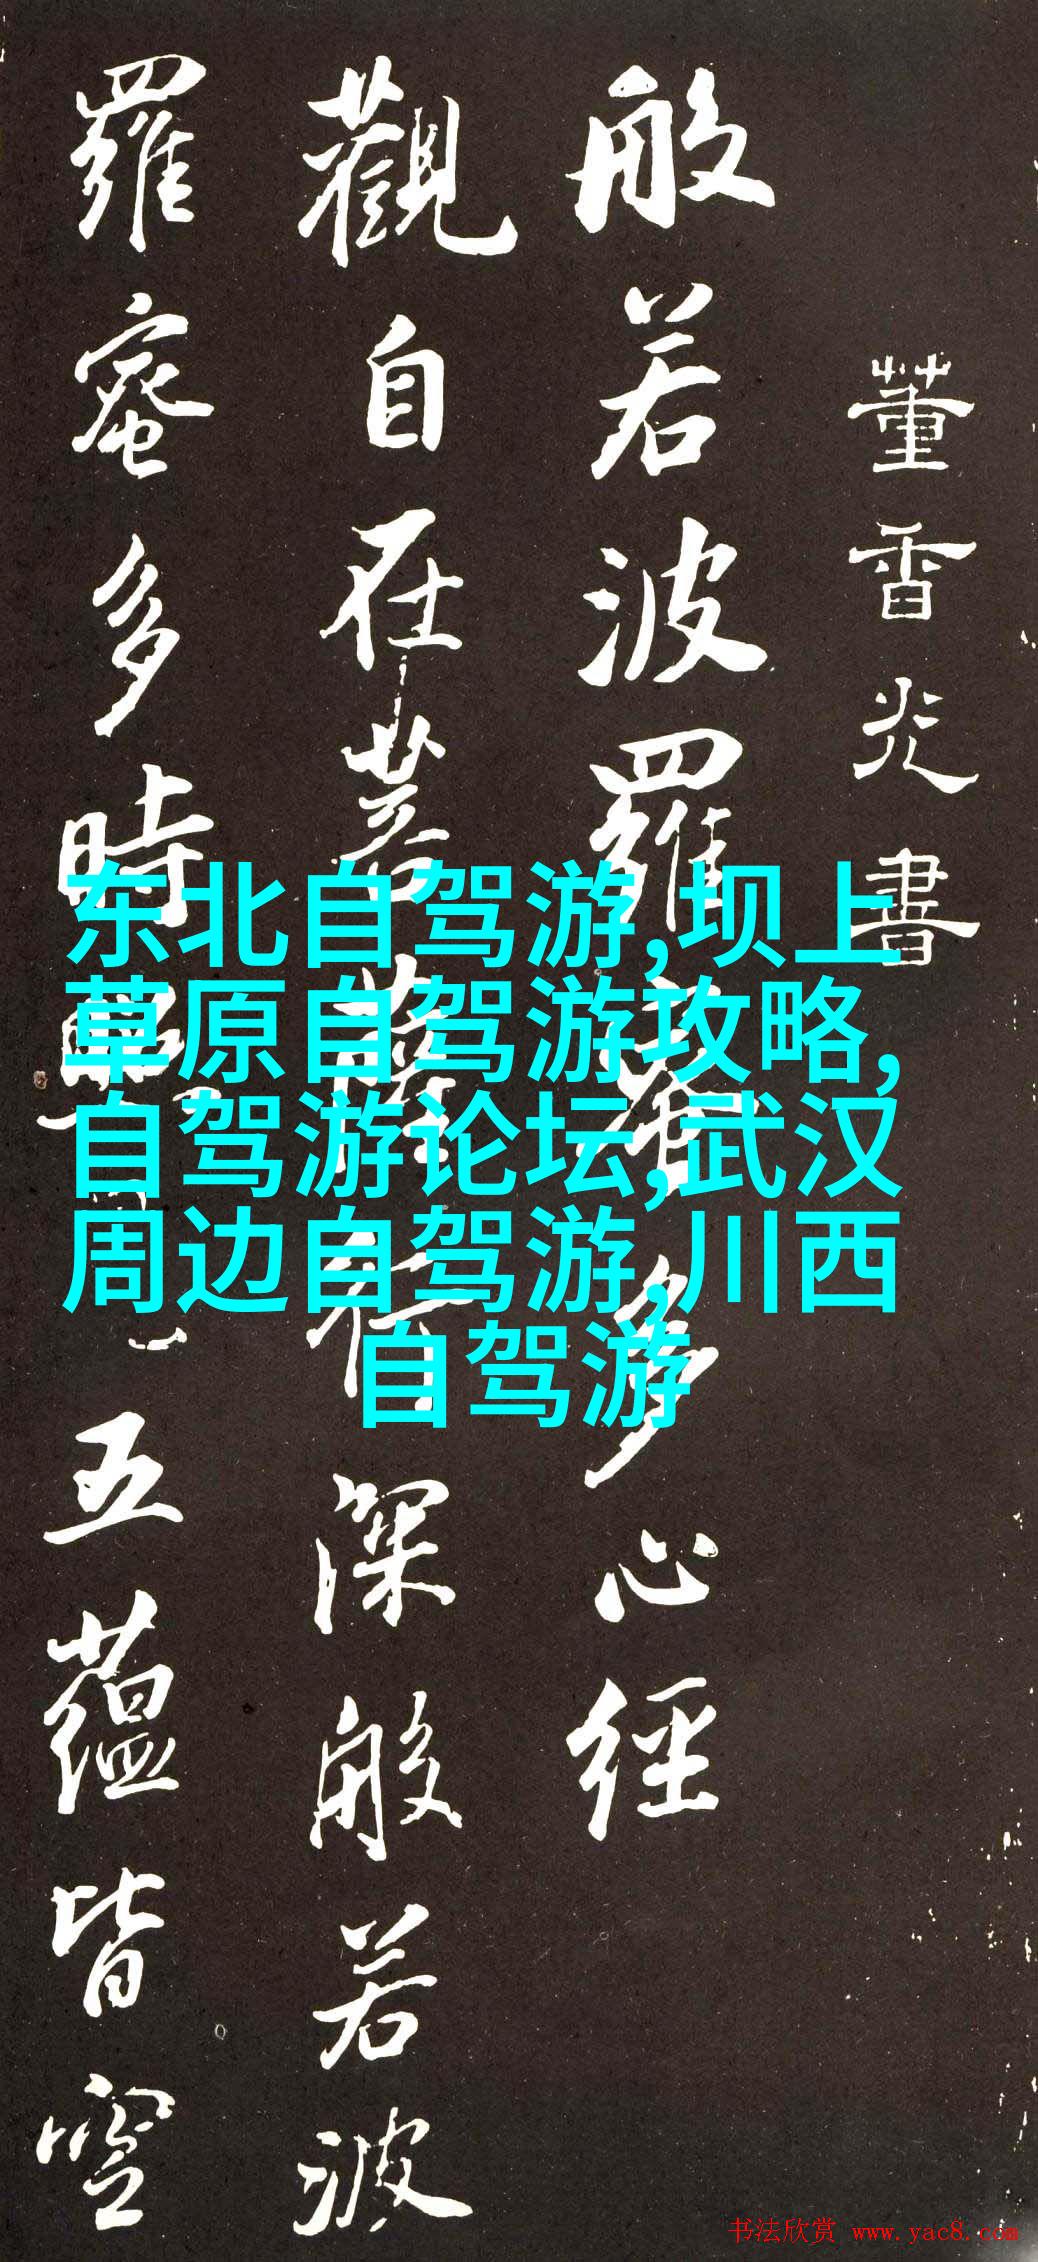 董香光書
般若波羅蜜多心經
觀自在菩薩行深般若波
羅蜜多時照見五蘊皆空
东北自驾游,坝上
草原自驾游攻略,
自驾游论坛,武汉
周边自驾游,川西
自驾游
书法欣赏 www.yac8.com